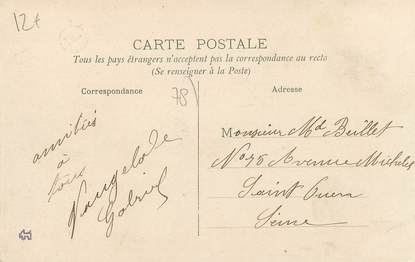 12€
CARTE POSTALE
Tous les pays étrangers n'acceptent pas la correspondance au recto
(Se renseigner à la Poste)
Correspondance
78
Adresse
amitiés
à
tous
Gabriel
Monsieur Md Beillet
No 75 Avenue Michelet
Saint Ouen
Seine